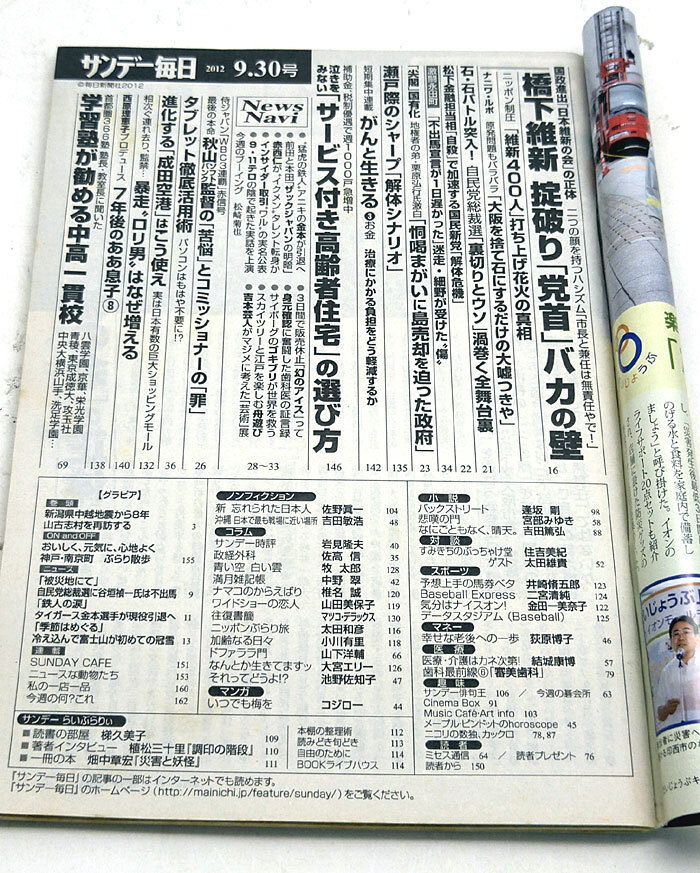 サンデー毎日 2012 9.30号
©毎日新聞社2012
国政進出「日本維新の会」の正体 二つの顔を持つハシズム「市長と兼任は無責任やで!」
橋下維新 掟破り「党首」バカの壁 16
ニッポン制圧「維新400人」打ち上げ花火の真相
ナニワ・ルポ 原発問題もバラバラ「大阪を捨て石にするだけの大嘘つきや」 21
石・石バトル突入! 自民党総裁選「裏切りとウソ」渦巻く全舞台裏 22
松下金融担当相「自殺」で加速する国民新党「解体危機」 34
「不出馬宣言が1日遅かった」迷走・細野が受けた“傷” 23
「尖閣」国有化 地権者の弟・栗原弘行氏激白「恫喝まがいに島売却を迫った政府」 135
瀬戸際のシャープ「解体シナリオ」 142
短期集中連載 がんと生きる③お金 治療にかかる負担をどう軽減するか
補助金、税制優遇で週1000戸急増中
泣きをみない「サービス付き高齢者住宅」の選び方 146
News Navi
●「猛虎の鉄人」アニキの金本が引退へ
●前田と本田「ザックジャパンの明暗」
●赤西仁が「イクメン」タレント転身か
●インサイダー取引“ワル”の実名公表
●9・11テロの陰で起きた実話を上演
今週のブーイング 松崎菊也
●3日間で販売休止「幻のアイス」って
●身元確認に奮闘した歯科医の証言録
●サイボーグのゴキブリが世界を救う
●スカイツリーと江戸を楽しむ舟遊び
●吉本芸人がマジメに考えた「芸術」展
28〜33
侍ジャパン「WBC3連覇」赤信号
最後の本命 秋山ソフトバンク監督の「苦悩」とコミッショナーの「罪」 26
タブレット徹底活用術 パソコンはもはや不要に!? 36
進化する「成田空港」はこう使え 実は日本有数の巨大ショッピングモール 132
相次ぐ連れ去り、監禁… 暴走“ロリ男”はなぜ増える 140
西原理恵子プロデュース 7年後のああ息子⑧ 138
首都圏366塾 塾長、教室長に聞いた
学習塾が勧める中高一貫校 八雲学園、京華、栄光学園
青稜、東京成徳大、攻玉社
中央大横浜山手、洗足学園… 69
【グラビア】
巻頭
新潟県中越地震から8年
山古志村を再訪する 3
ON and OFF
おいしく、元気に、心地よく
神戸・南京町 ぶらり散歩 155
ニュース
「被災地にて」
自民党総裁選に谷垣禎一氏は不出馬 9
「鉄人の涙」
タイガース金本選手が現役引退へ 11
「季節はめぐる」
冷え込んで富士山が初めての冠雪 13
連載
SUNDAY CAFE 151
ニュースな動物たち 153
私の一店一品 160
今週の何?これ 162
ノンフィクション
新 忘れられた日本人 佐野眞一 104
沖縄 日本で最も戦場に近い場所 吉田敏浩 48
コラム
サンデー時評 岩見隆夫 40
政経外科 佐高 信 35
青い空 白い雲 牧 太郎 128
満月雑記帳 中野 翠 42
ナマコのからえばり 椎名 誠 120
ワイドショーの恋人 山田美保子 119
往復書簡 マツコ・デラックス 130
ニッポンぶらり旅 太田和彦 116
加齢なる日々 小川有里 118
ドファララ門 山下洋輔 66
なんとか生きてますッ 大宮エリー 126
それってどうよ!? 池野佐知子 47
マンガ
いつでも梅を コジロー 44
小説
バックストリート 逢坂 剛 98
悲嘆の門 宮部みゆき 58
なにごともなく、晴天。 吉田篤弘 88
対談
すみきちのぶっちゃけ堂 住吉美紀
ゲスト 太田雄貴 52
スポーツ
予想上手の馬券ベタ 井崎脩五郎 123
Baseball Express 二宮清純 124
気分はナイスオン! 金田一美奈子 122
データスタジアム (Baseball) 125
マネー
幸せな老後への一歩 荻原博子 46
医療
医療・介護はカネ次第! 結城康博 57
歯科最前線⑥「審美歯科」 79
趣味
サンデー俳句王 106 / 今週の碁会所 63
Cinema Box 91
Music Café·Art info 103
メープルビンドットのhoroscope 45
ニコリの数独、カックロ 78,87
読者
ミセス通信 64 / 読者プレゼント 76
読者から 150
サンデー らいぶらりぃ
■読書の部屋 梯久美子 109
■著者インタビュー 植松三十里「調印の階段」 110
■一冊の本 畑中章宏「災害と妖怪」 111
本棚の整理術 112
読みどき旬どき 113
自由のために 114
BOOKライブハウス 114
「サンデー毎日」の記事の一部はインターネットでも読めます。
「サンデー毎日」のホームページ(http://mainichi.jp/feature/sunday/)をご覧ください。